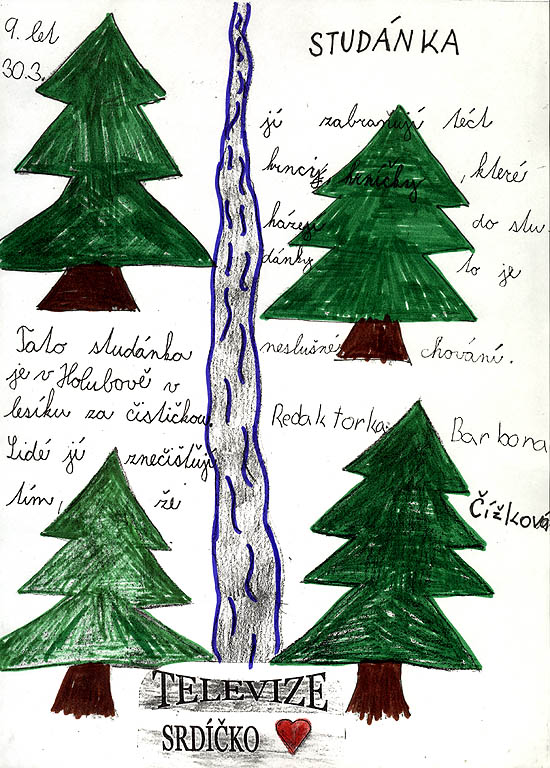 9. let
30.3.
STUDÁNKA
Tato studánka
je v Holubově v
lesíku za čističkou.
Lidé jí znečišťují
tím, že
jí zabraňují téct
hrníčky, které
házejí do stu-
dánky to je
neslušné chování.
Redaktorka: Barbora
Čížková
TELEVIZE
SRDÍČKO